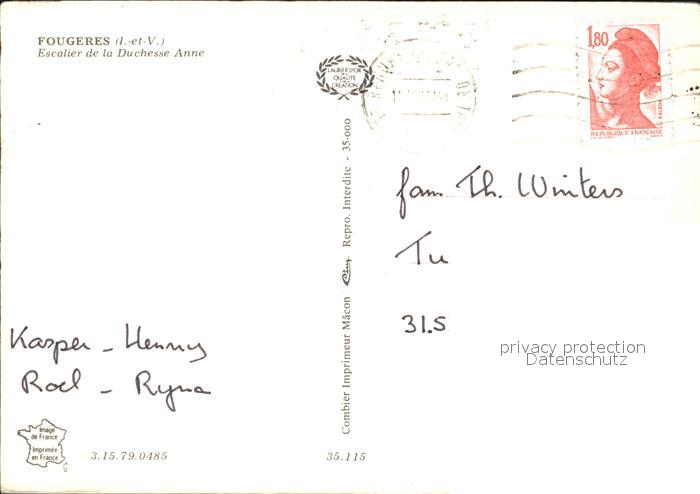 FOUGERES (I.-et-V.)
Escalier de la Duchesse Anne
LAURIER D'OR
DE LA
QUALITÉ
CREATION
1,80
POSTES
REPUBLIQUE FRANÇAISE
fam Th. Winters
Tu
31.S
privacy protection
Datenschutz
Kasper - Henny
Roel - Ryna
Combier Imprimeur Mâcon Cim Repro. Interdite - 35-000
Image
de France
Imprimée
en France
3.15.79.0485
35.115